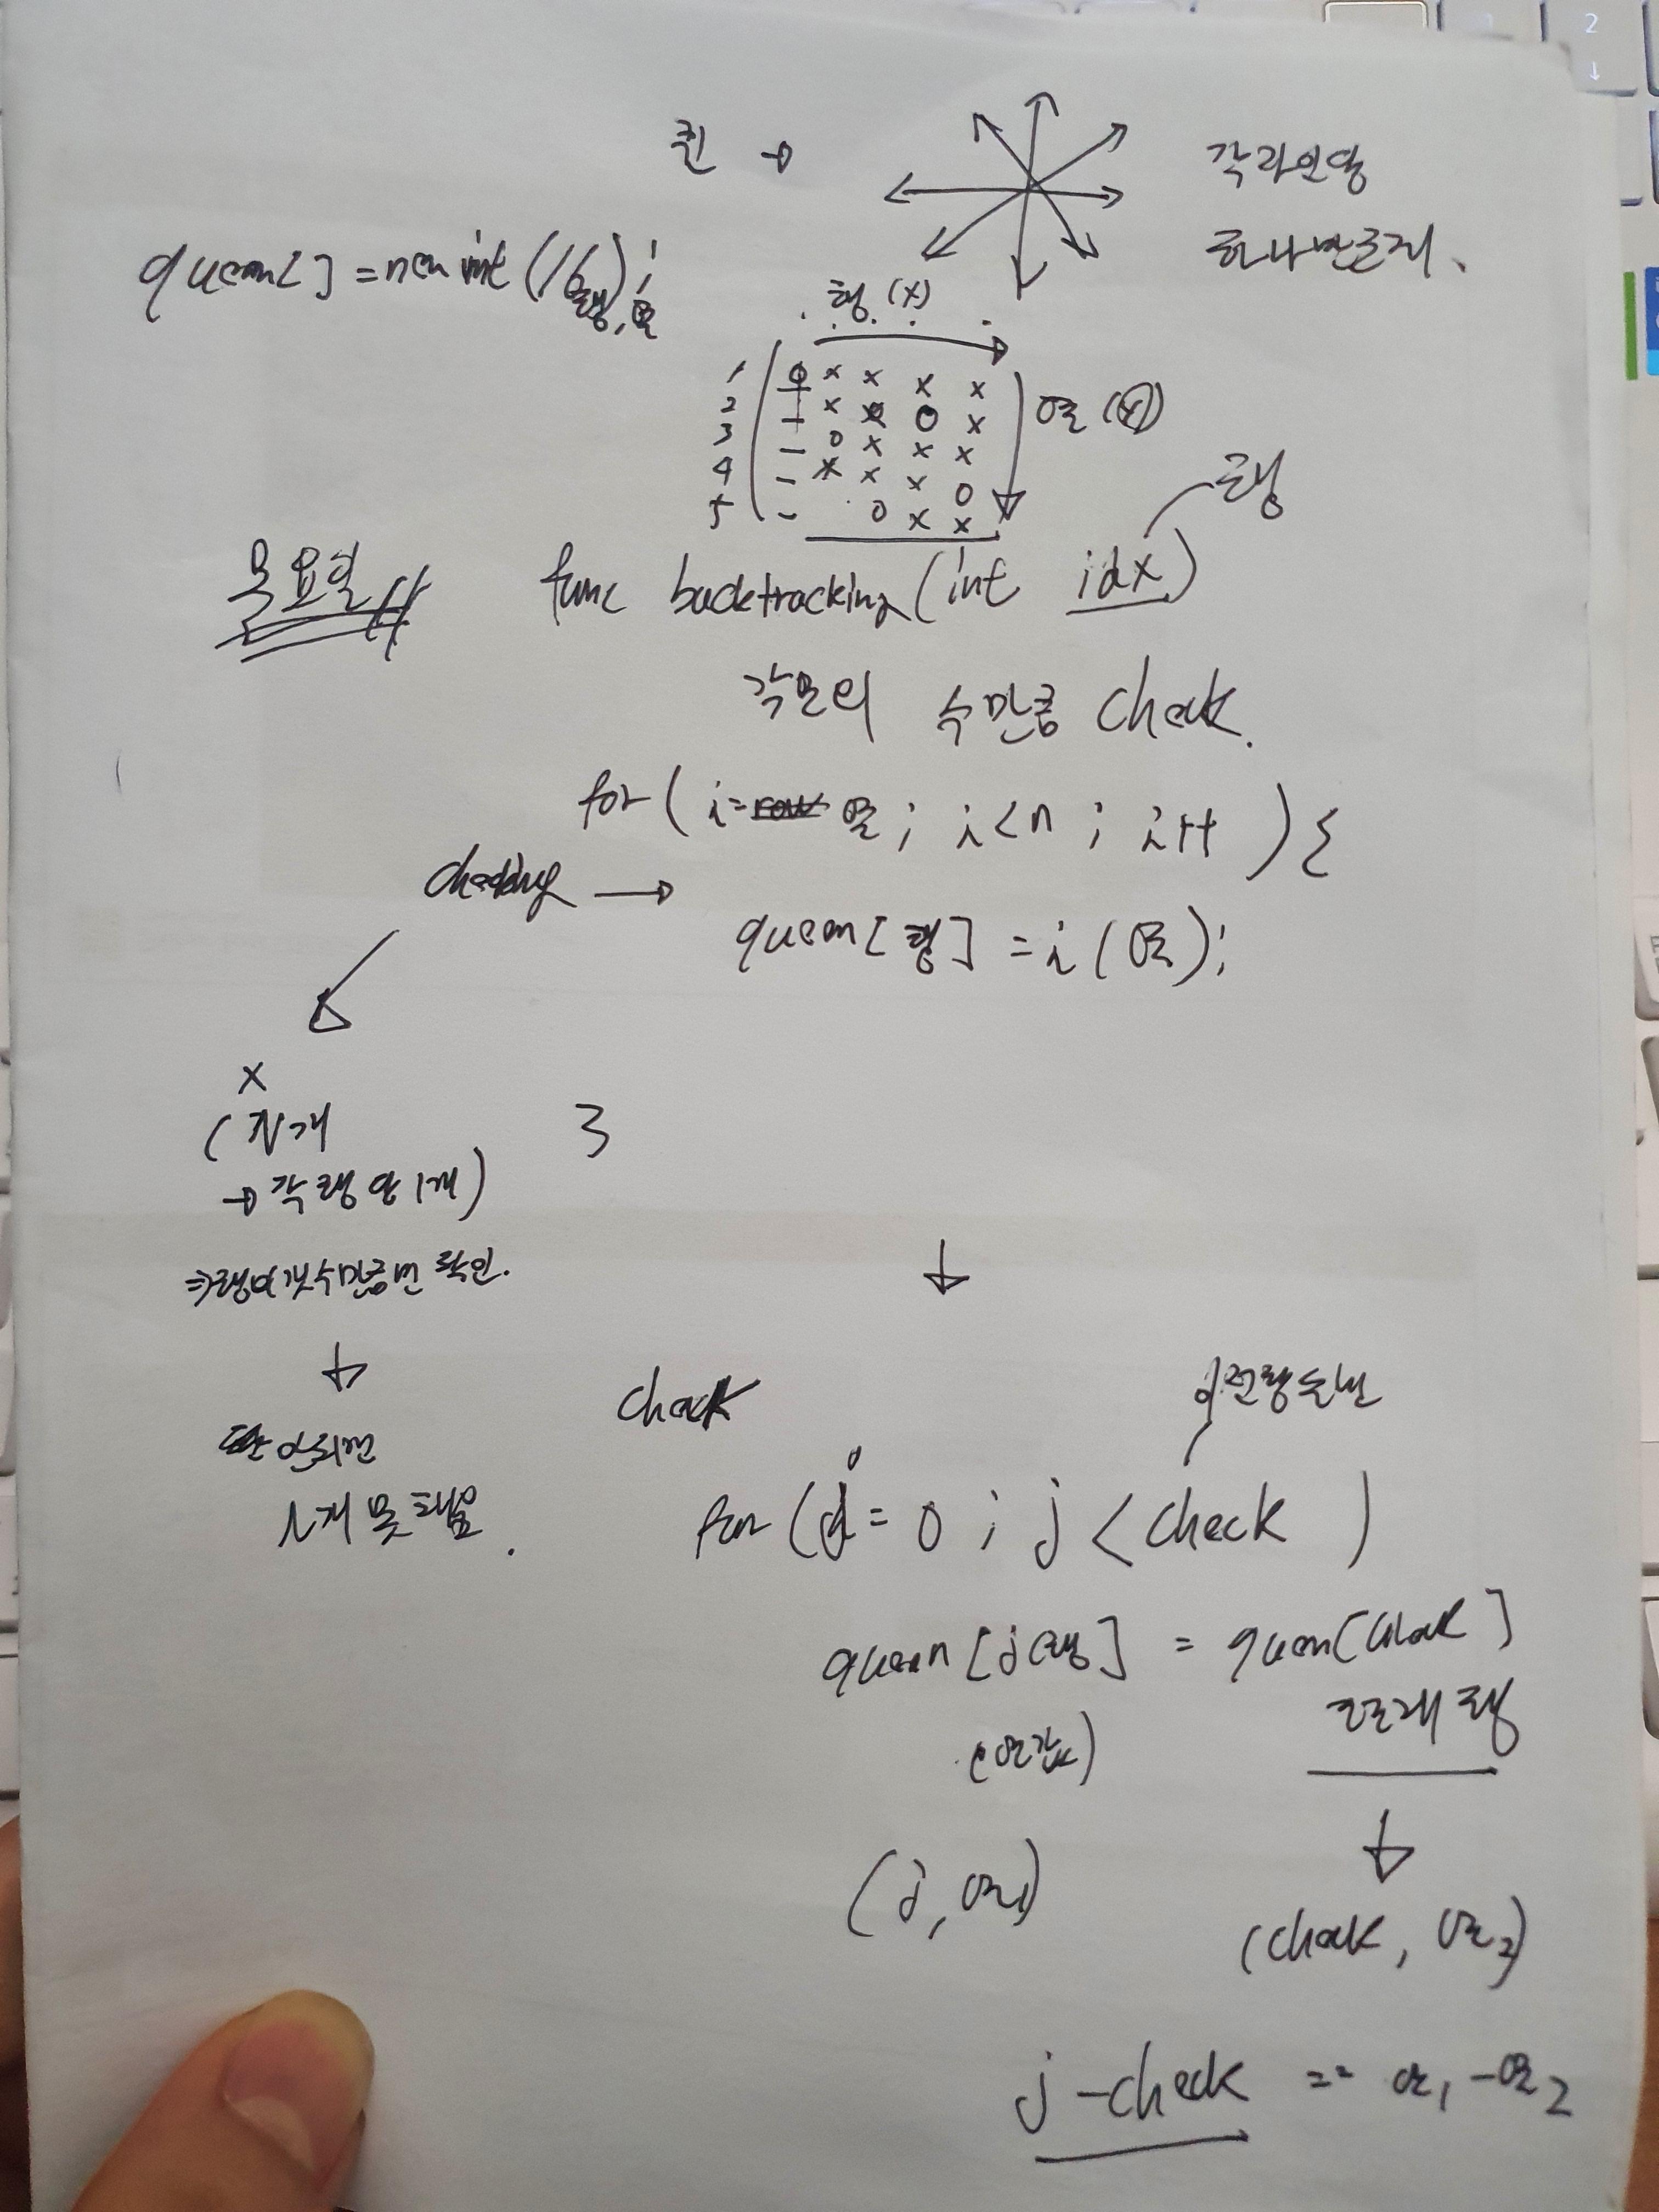 퀸 →
각 라인당
하나만 존재.
queen[] = new int(16);
행, 열
행(X)
1 0 x x x x
2 - x x 0 x
3 - 0 x x x
4 - x x x 0
5 - 0 x x
열(Y)
행
목요일
func backtracking(int idx)
각 열의 수만큼 check.
for( i= row 열; i<n; i++ ){
checking →
queen[행] = i(열);
x
(N개
→ 각 행당 1개)
}
⇒ 행의 갯수만큼만 확인.
안되면
1개 못 채움.
check
이전행
for (j=0; j < check )
queen[j(행] = queen[check]
(열값)
현재 행
(j, 열1)
(check, 열2)
j-check == 열1-열2